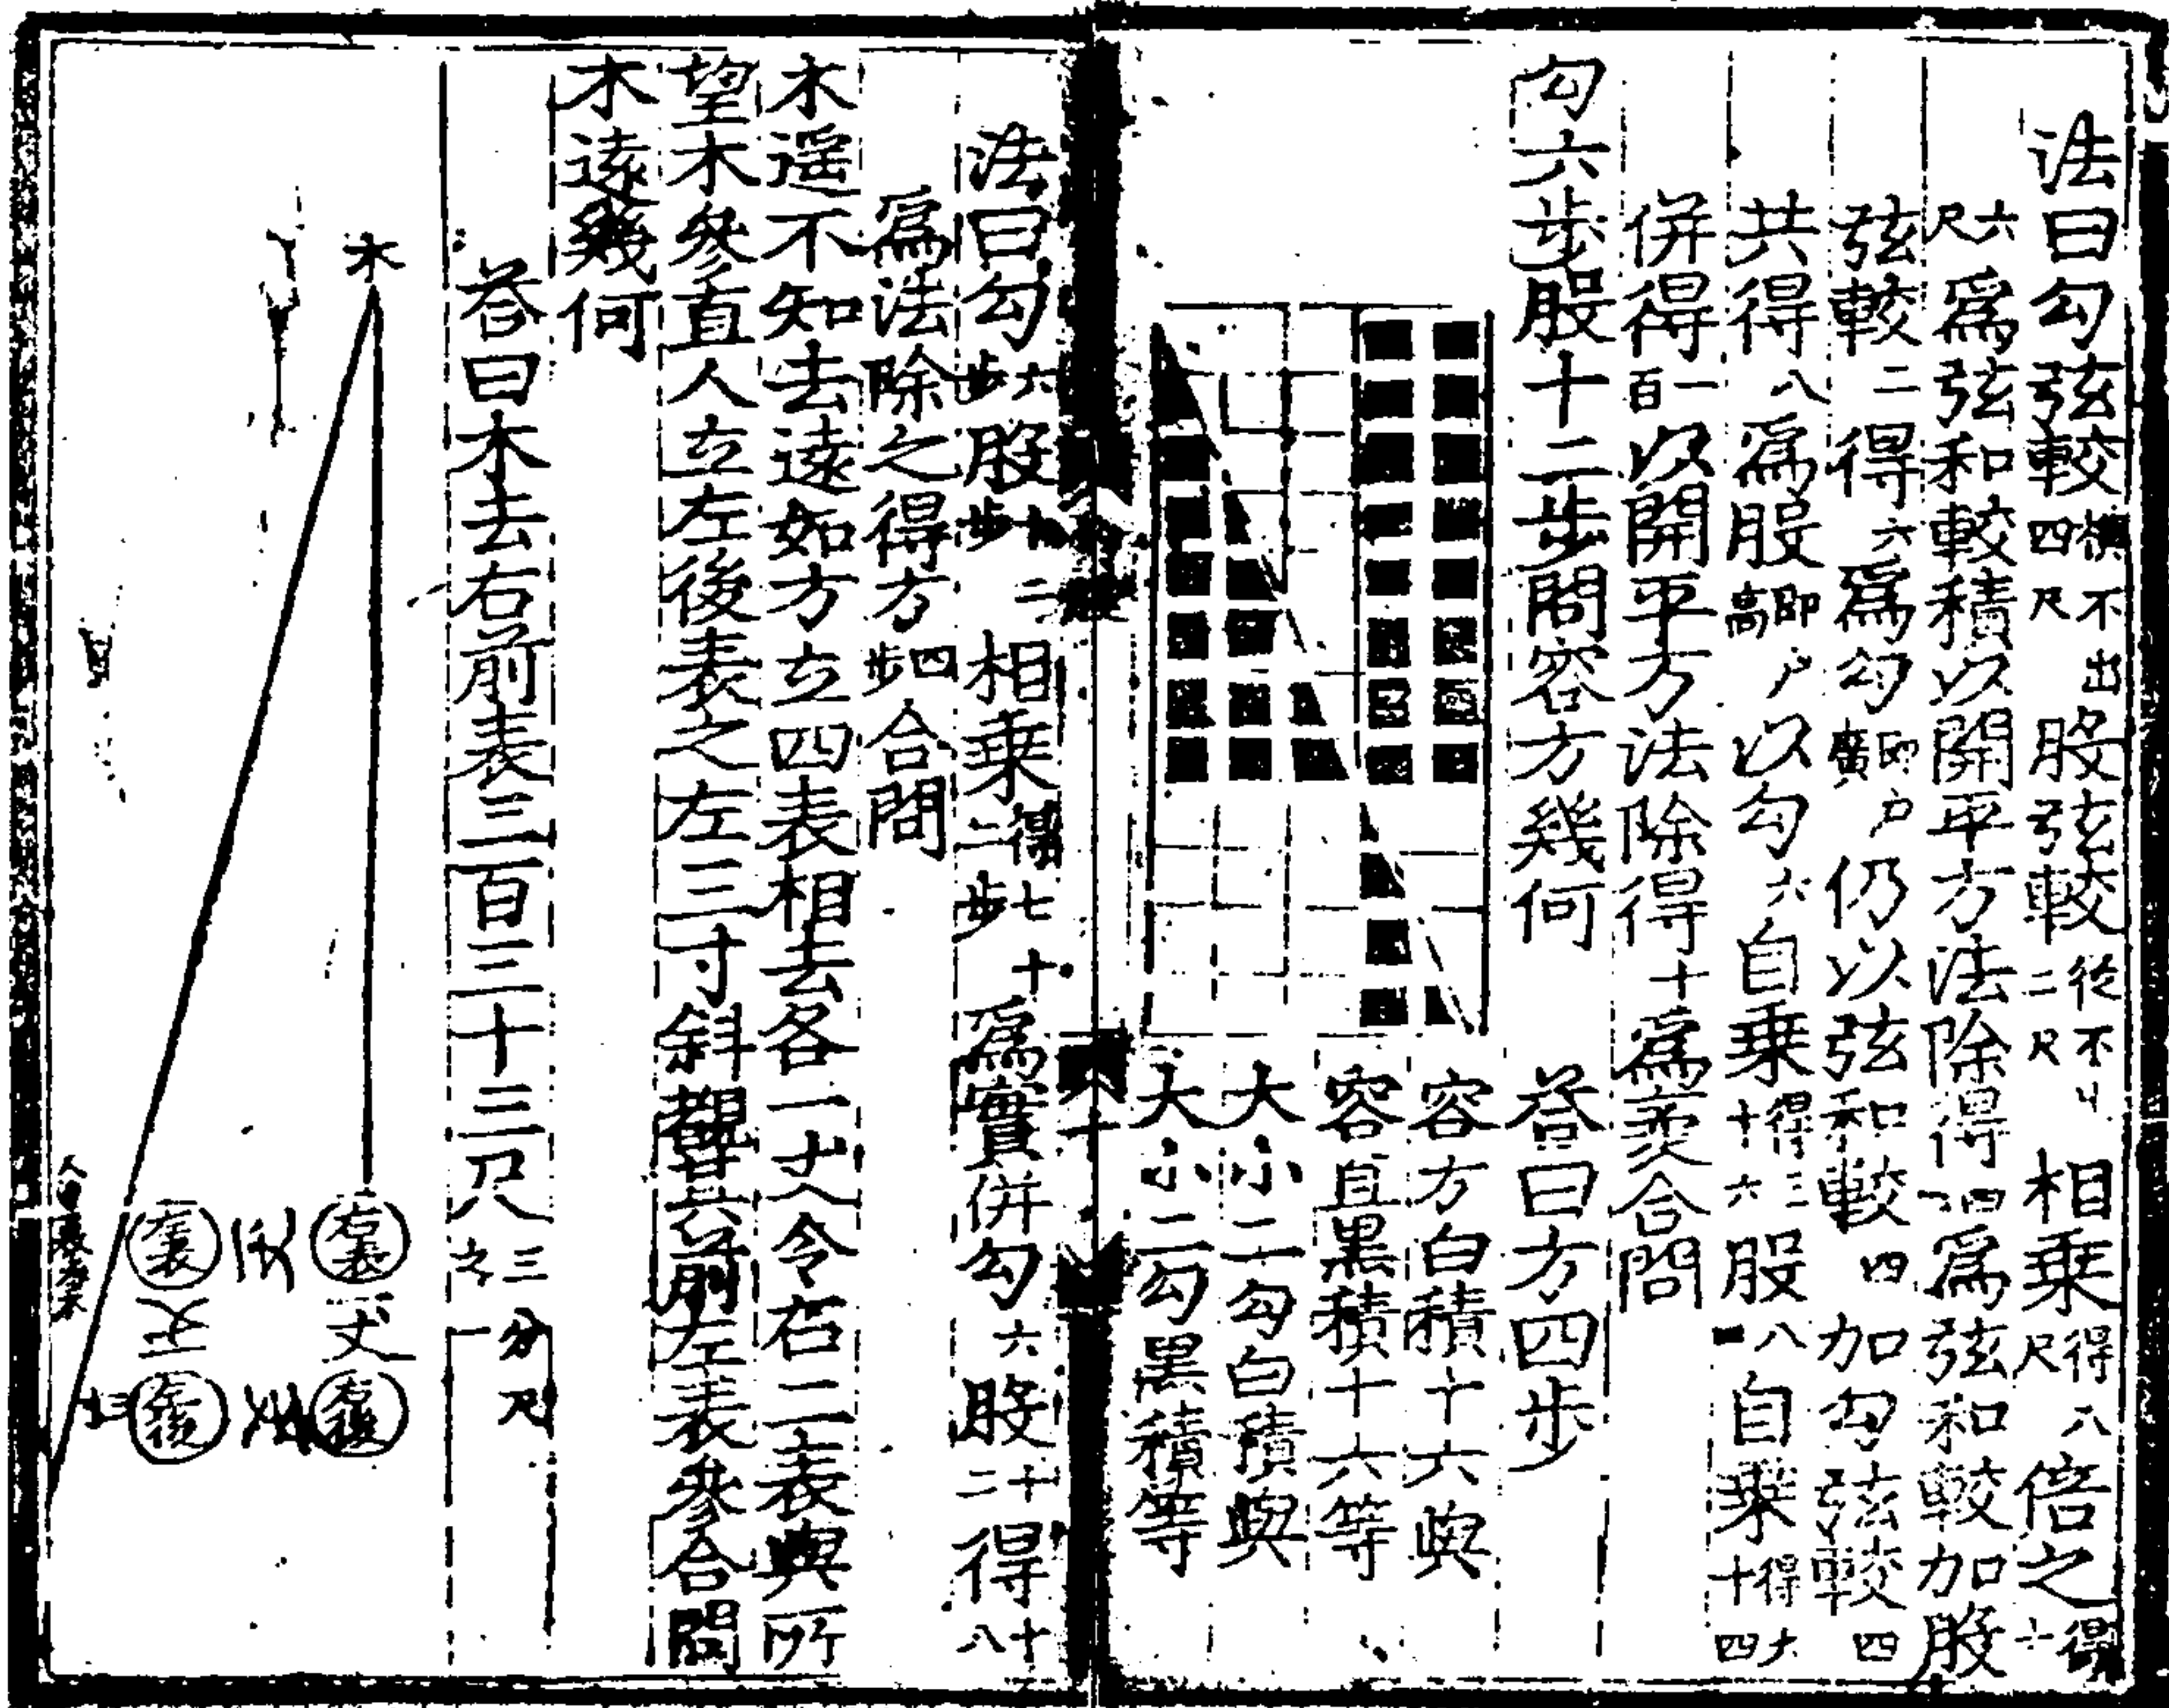 法曰勾弦較橫不出四尺股弦較從不出二尺相乘得八尺倍之得十
六尺爲弦和較積以開平方法除得四爲弦和較加股
弦較二得六爲勾即戶廣仍以弦和較四加勾弦較四
共得八爲股即戶高以勾六自乘得三十六股八自乘得六十四
併得一百以開平方法除得十爲弦合問
勾六步股十二步問容方幾何
答曰方四步
容方白積十六與
容直黑積十六等
大小二勾白積與
大小二勾黑積等
法曰勾六步股十二步相乘得七十二步爲實併勾六股十二得十八
爲法除之得方四步合問
木遥不知去遠如方立四表相去各一丈令右二表與所
望木參直人立左後表之左三寸斜觀其前左表參合問
木遠幾何
答曰木去右前表三百三十三尺三分尺之一
木
右表
丈
右後
左表
左後